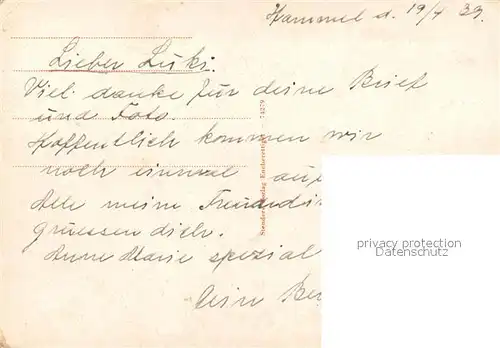 Hammel d. 19/4 39.
Lieber Luki.
Viel danke für deine Brief
und Foto.
Hoffentlich kommen wir
noch einmal auf
Alle meine
gruessen dich.
Anne Marie spezial
Dein
74279
privacy protection
Datenschutz